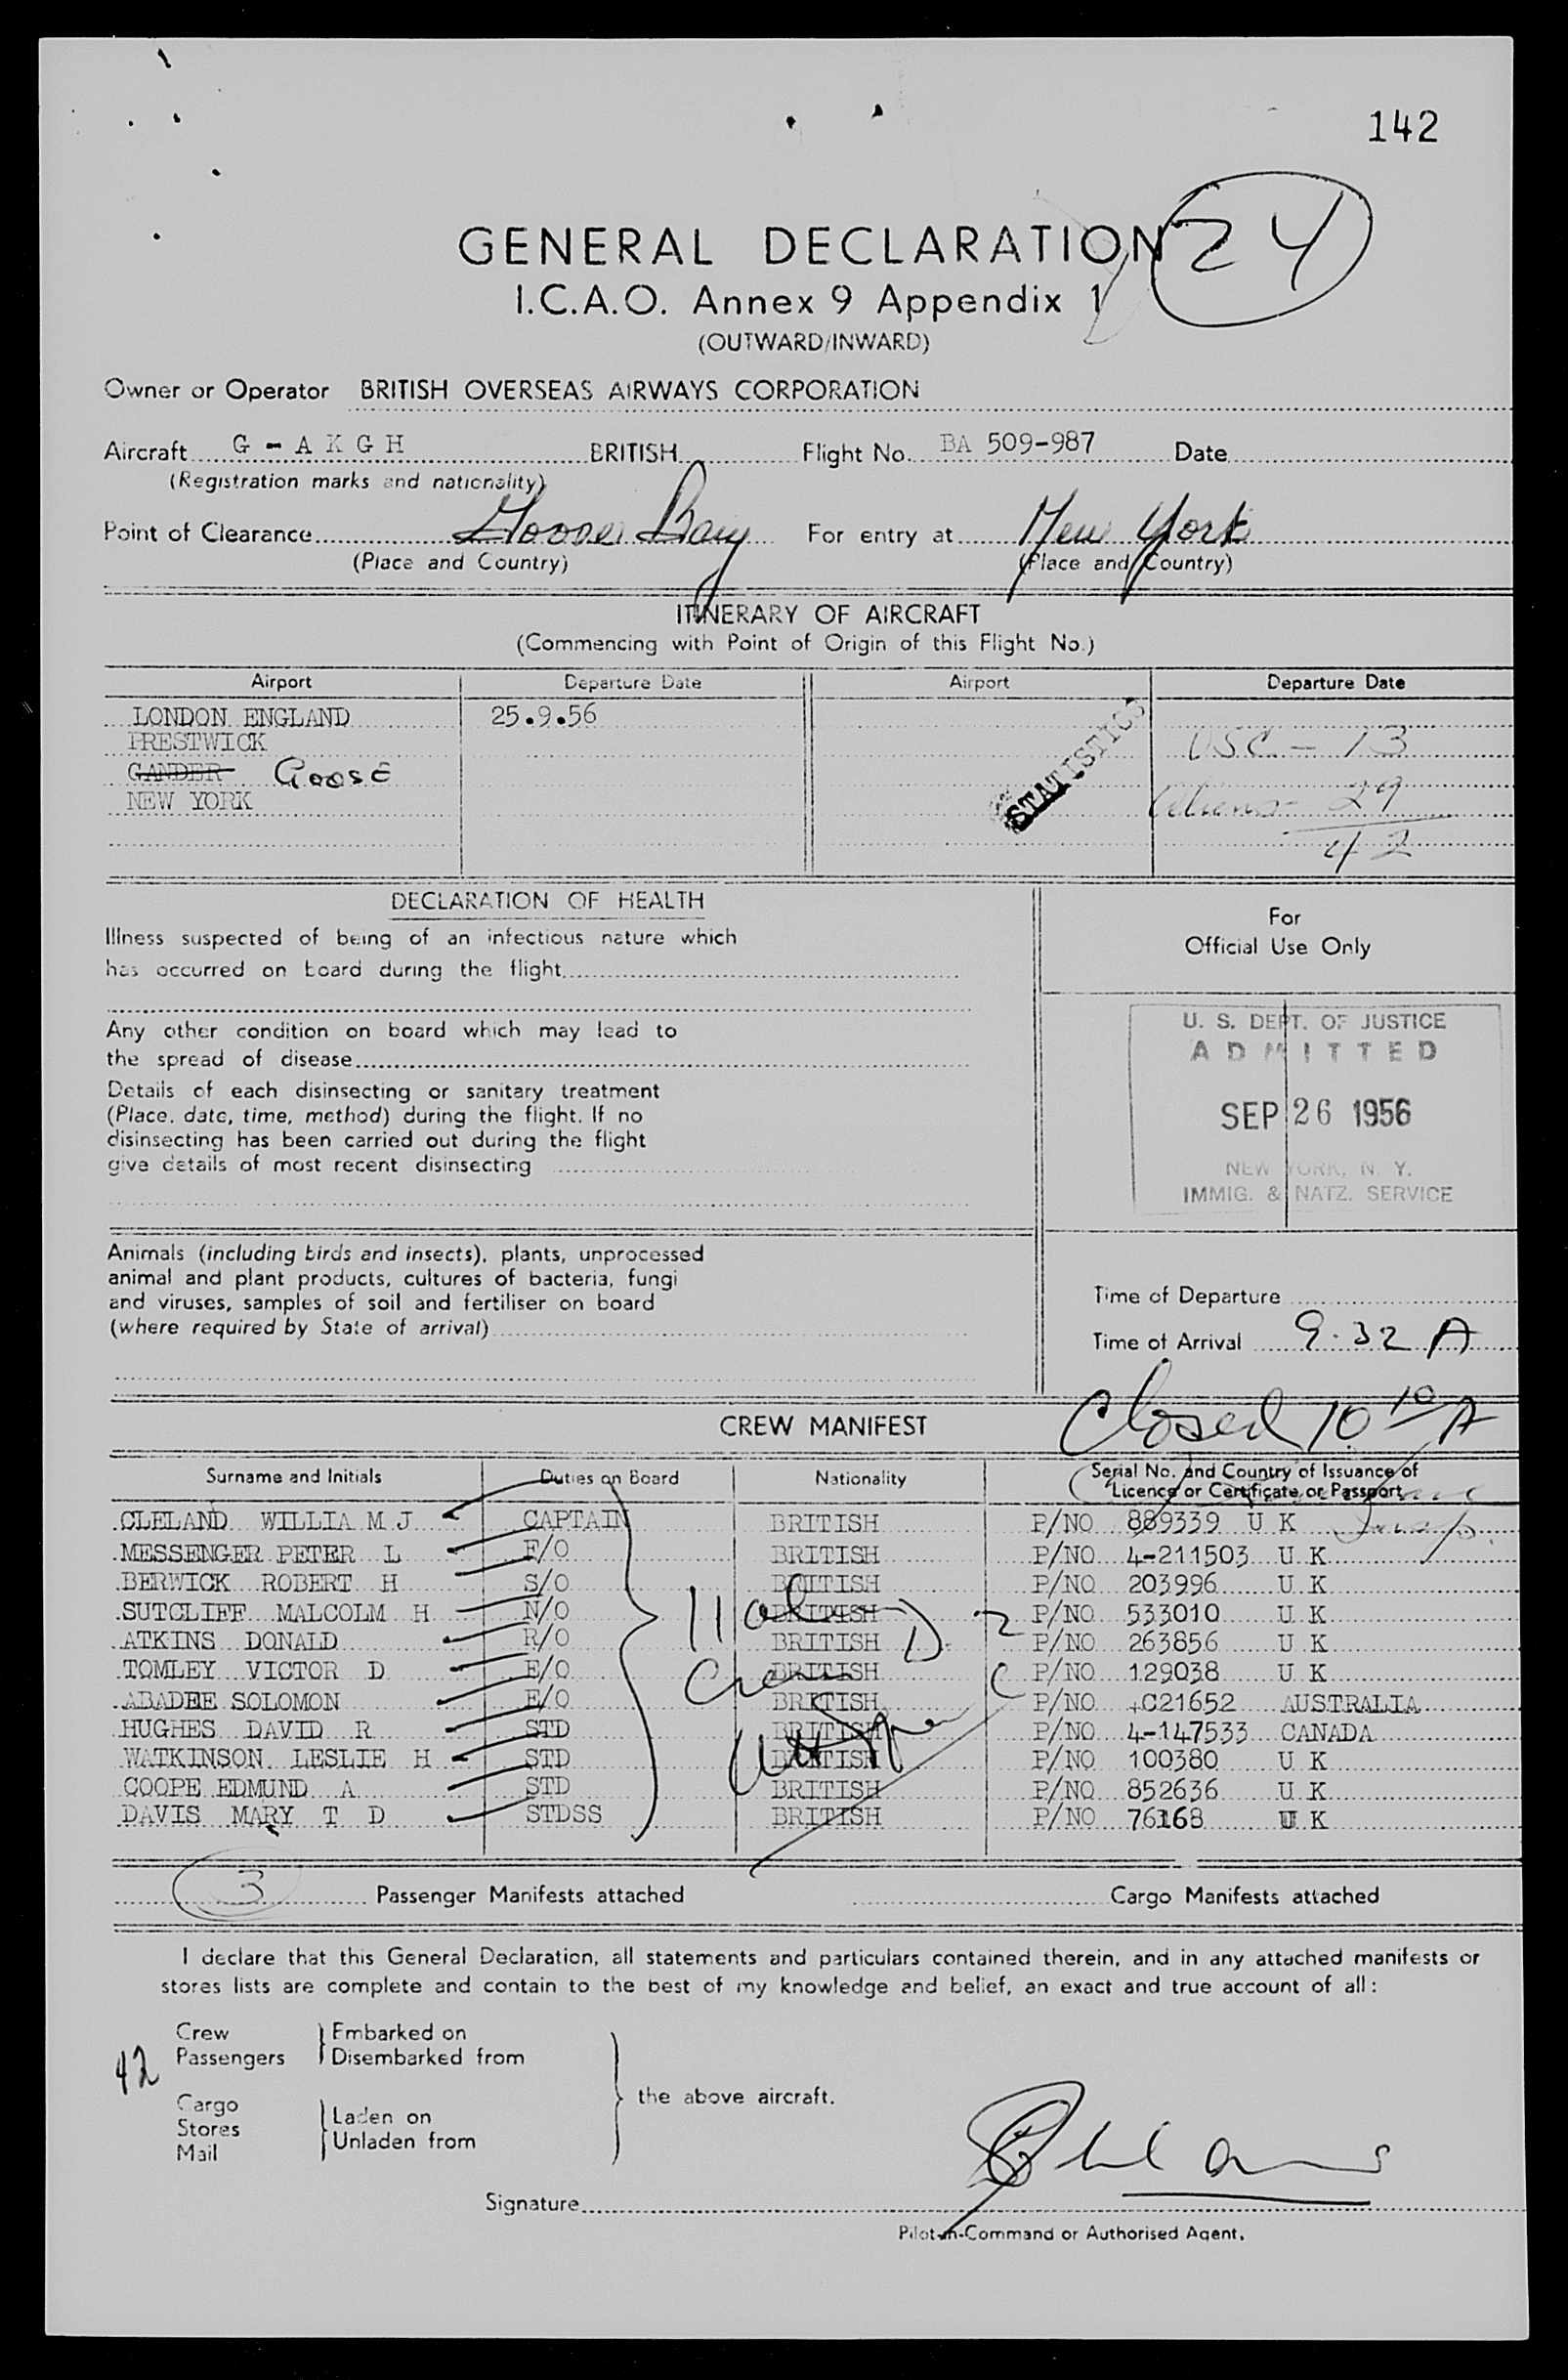 142
24
GENERAL DECLARATION
I.C.A.O. Annex 9 Appendix 1
(OUTWARD/INWARD)
Owner or Operator BRITISH OVERSEAS AIRWAYS CORPORATION
Aircraft G - A K G H BRITISH Flight No. BA 509-987 Date
(Registration marks and nationality)
Point of Clearance Goose Bay For entry at New York
(Place and Country) (Place and Country)
ITINERARY OF AIRCRAFT
(Commencing with Point of Origin of this Flight No.)
Airport Departure Date Airport Departure Date
LONDON ENGLAND 25.9.56
PRESTWICK USC - 13
GANDER Goose
NEW YORK Aliens - 29
STATISTICS
42
DECLARATION OF HEALTH
Illness suspected of being of an infectious nature which
has occurred on board during the flight
Any other condition on board which may lead to
the spread of disease
Details of each disinsecting or sanitary treatment
(Place, date, time, method) during the flight. If no
disinsecting has been carried out during the flight
give details of most recent disinsecting
For
Official Use Only
U. S. DEPT. OF JUSTICE
ADMITTED
SEP 26 1956
NEW YORK, N. Y.
IMMIG. & NATZ. SERVICE
Animals (including birds and insects), plants, unprocessed
animal and plant products, cultures of bacteria, fungi
and viruses, samples of soil and fertiliser on board
(where required by State of arrival)
Time of Departure
Time of Arrival 9.32 A
Closed 10 10 A
CREW MANIFEST
Surname and Initials Duties on Board Nationality Serial No. and Country of Issuance of
Licence or Certificate or Passport
CLELAND WILLIA M J CAPTAIN BRITISH P/NO 889339 U K
MESSENGER PETER L F/O BRITISH P/NO 4-211503 U K
BERWICK ROBERT H S/O BRITISH P/NO 203996 U K
SUTCLIFF MALCOLM H N/O BRITISH P/NO 533010 U K
ATKINS DONALD R/O BRITISH P/NO 263856 U K
TOMLEY VICTOR D E/O BRITISH P/NO 129038 U K
ABADEE SOLOMON E/O BRITISH P/NO +C21652 AUSTRALIA
HUGHES DAVID R STD BRITISH P/NO 4-147533 CANADA
WATKINSON LESLIE H STD BRITISH P/NO 100380 U K
COOPE EDMUND A STD BRITISH P/NO 852636 U K
DAVIS MARY T D STDSS BRITISH P/NO 76168 U K
11 D-2
3 Passenger Manifests attached Cargo Manifests attached
I declare that this General Declaration, all statements and particulars contained therein, and in any attached manifests or
stores lists are complete and contain to the best of my knowledge and belief, an exact and true account of all:
Crew Embarked on
42 Passengers Disembarked from
the above aircraft.
Cargo Laden on
Stores Unladen from
Mail
Signature
Pilot-in-Command or Authorised Agent.